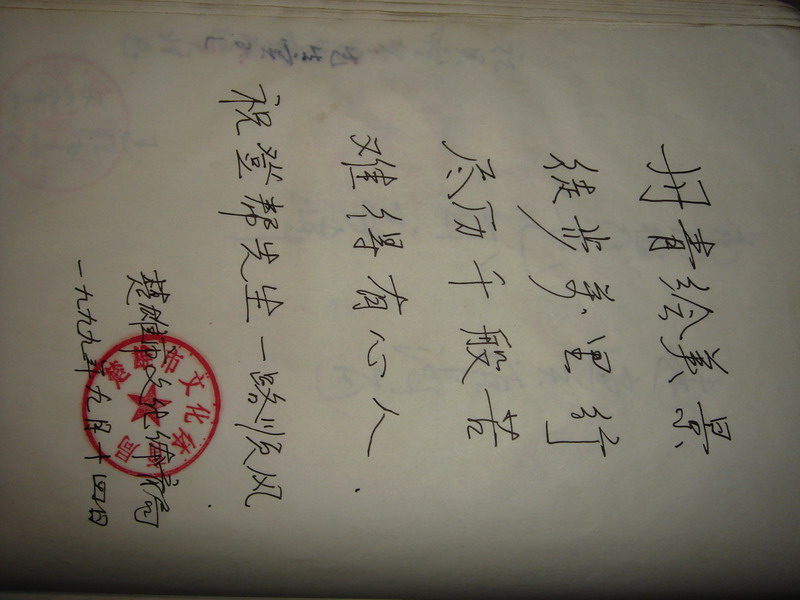 丹青绘美景
徒步万里行
尽历千般苦
难得有心人.
祝登帮先生一路顺风.
楚雄市文化体育局
一九九九年九月十四日
楚雄市文化体育局